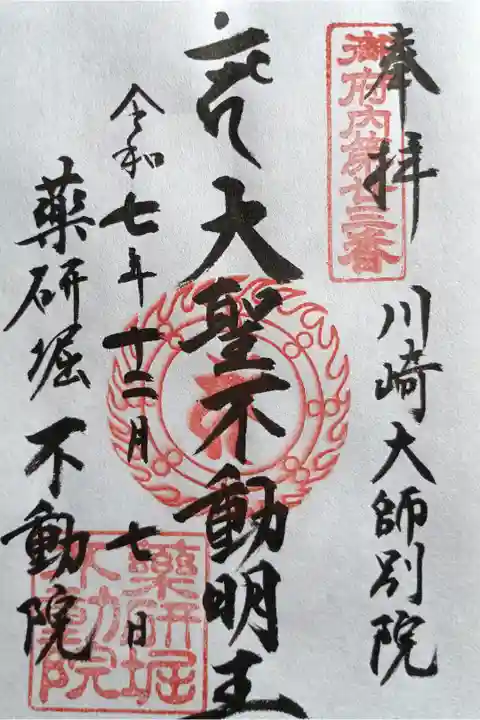 奉拝
御府内第廿三番
川崎大師別院
大聖不動明王
令和七年十二月七日
薬研堀不動院
薬研堀
不動院